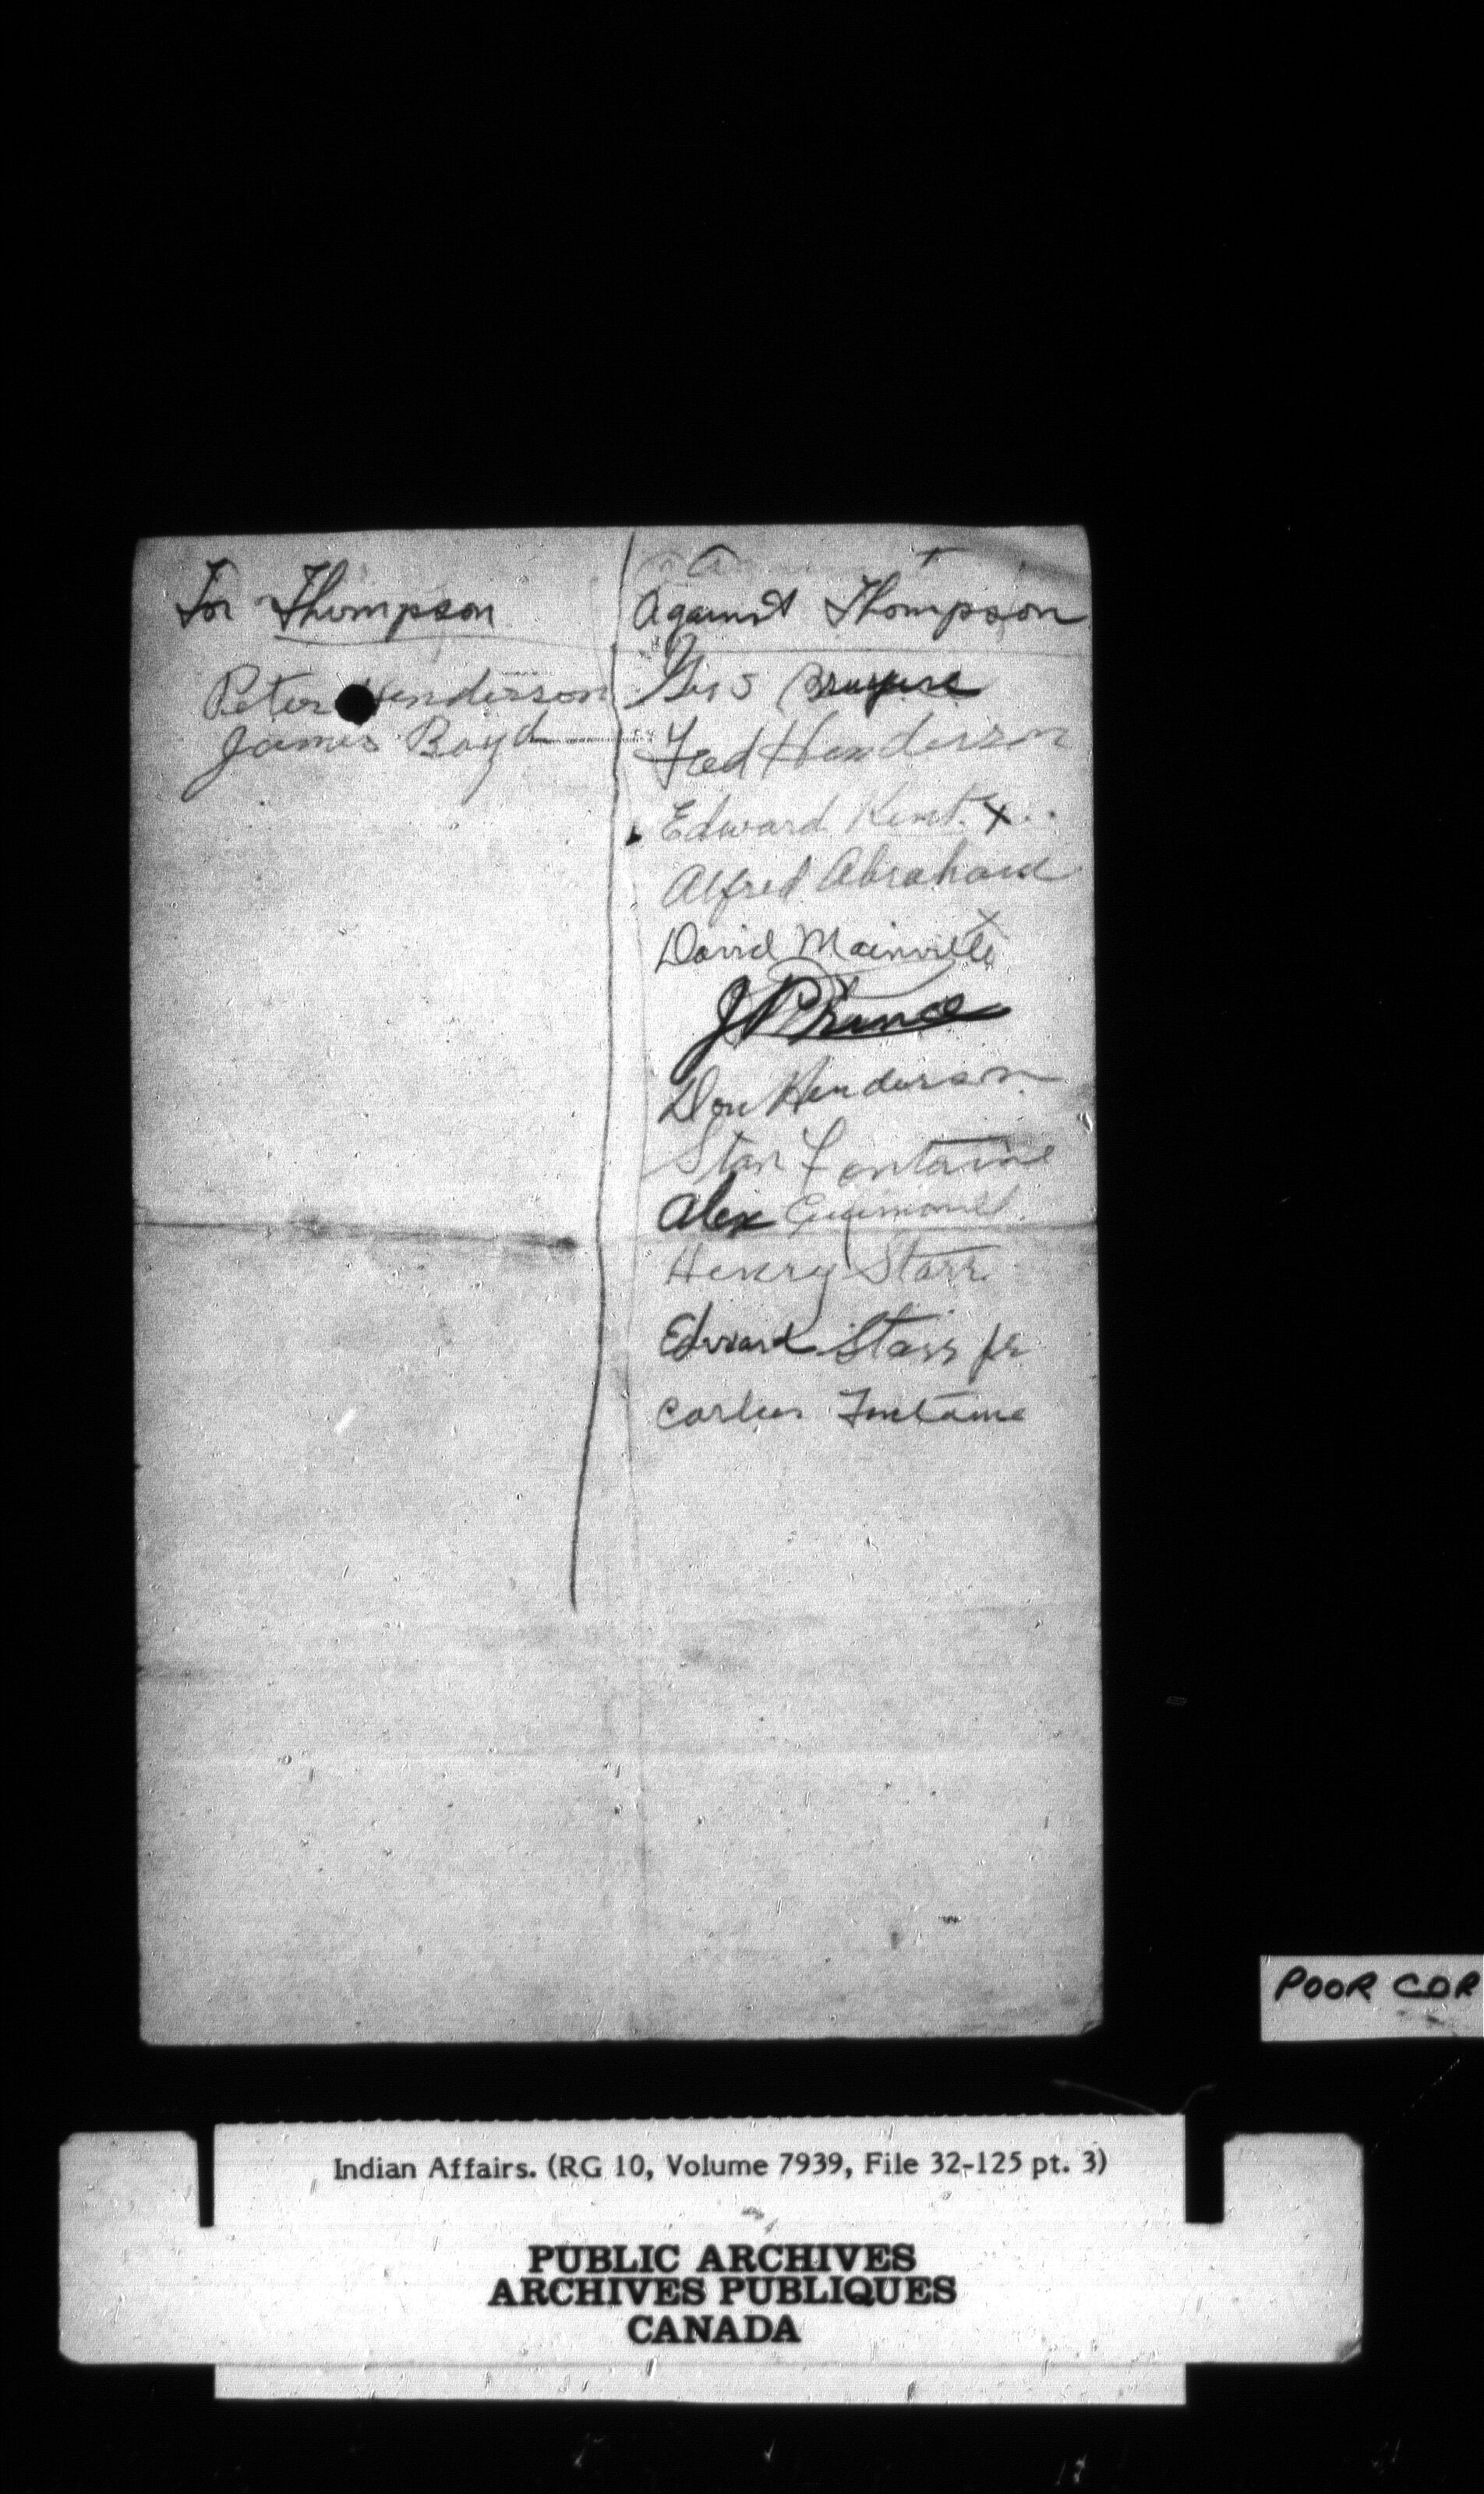 For Thompson
Peter Henderson
James Boyd
Against Thompson
Gus Bruyere
Fred Henderson
Edward Kent. X
Alfred Abraham
David Mainville X
J Prince
Don Henderson
Stan Fontaine
Alex Guimond
Henry Starr
Edward Starr Jr
Fontaine
POOR COP
Indian Affairs. (RG 10, Volume 7939, File 32-125 pt. 3)
PUBLIC ARCHIVES
ARCHIVES PUBLIQUES
CANADA